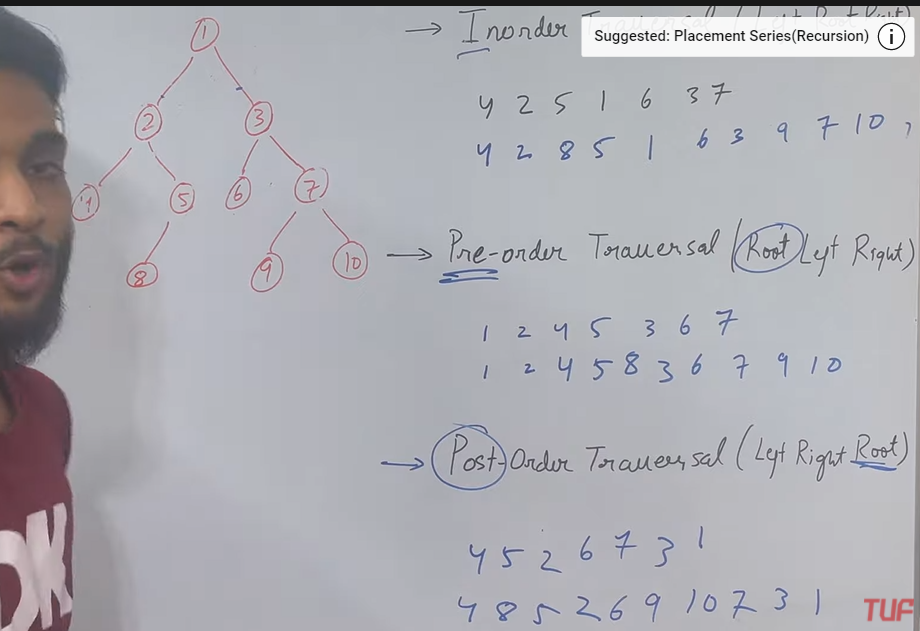 1
→ Inorder
Suggested: Placement Series(Recursion)
4 2 5 1 6 3 7
2 3
4 2 8 5 1 6 3 9 7 10 ,
4 5 6 7
→ Pre-order Traversal (Root Left Right)
8 9 10
1 2 4 5 3 6 7
1 2 4 5 8 3 6 7 9 10
→ Post-Order Traversal (Left Right Root)
4 5 2 6 7 3 1
4 8 5 2 6 9 10 7 3 1
TUF